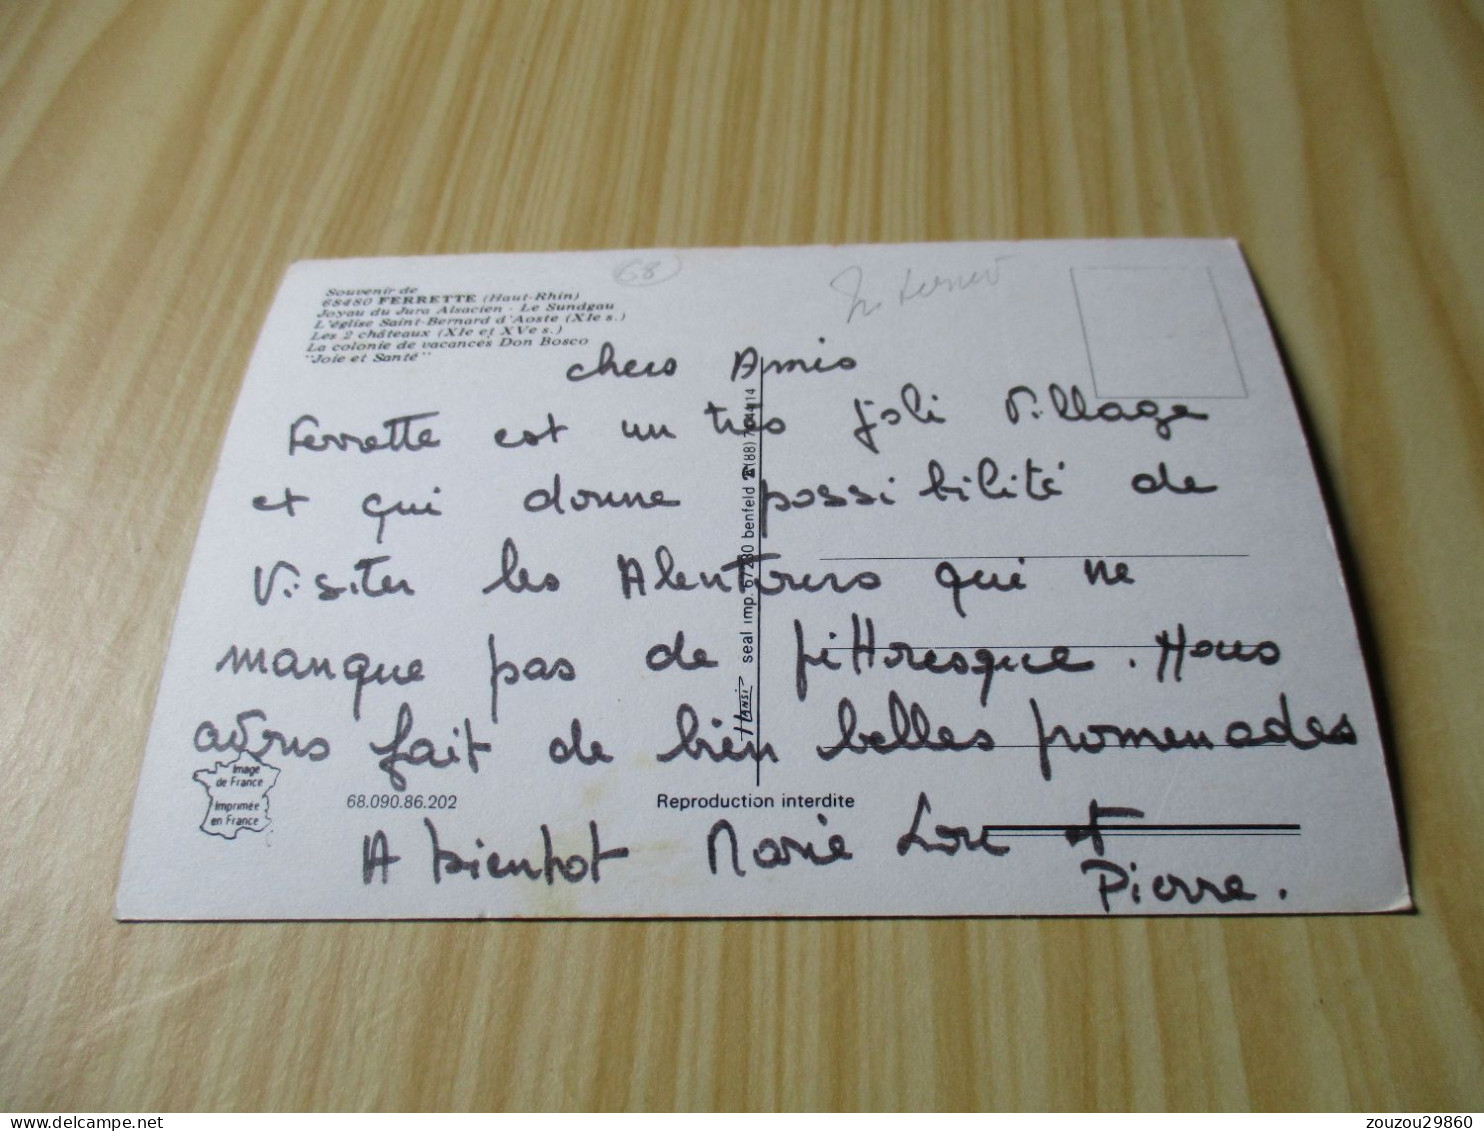 68
Internet
Souvenir de
68480 FERRETTE (Haut-Rhin)
Joyau du Jura Alsacien - Le Sundgau
L'église Saint-Bernard d'Aoste (XIe s.)
Les 2 châteaux (XIe et XVe s.)
La colonie de vacances Don Bosco
"Joie et Santé"
chers Amis
Ferrette est un très joli Village
et qui donne possibilité de
Visiter les Alentours qui ne
manque pas de pittoresque. Nous
avons fait de bien belles promenades
Image
de France
Imprimée
en France
68.090.86.202
Reproduction interdite
A bientot Marie Lore et
Pierre.
HANSI seal imp. 67230 benfeld ☎ (88) 74 44 14
zouzou29860